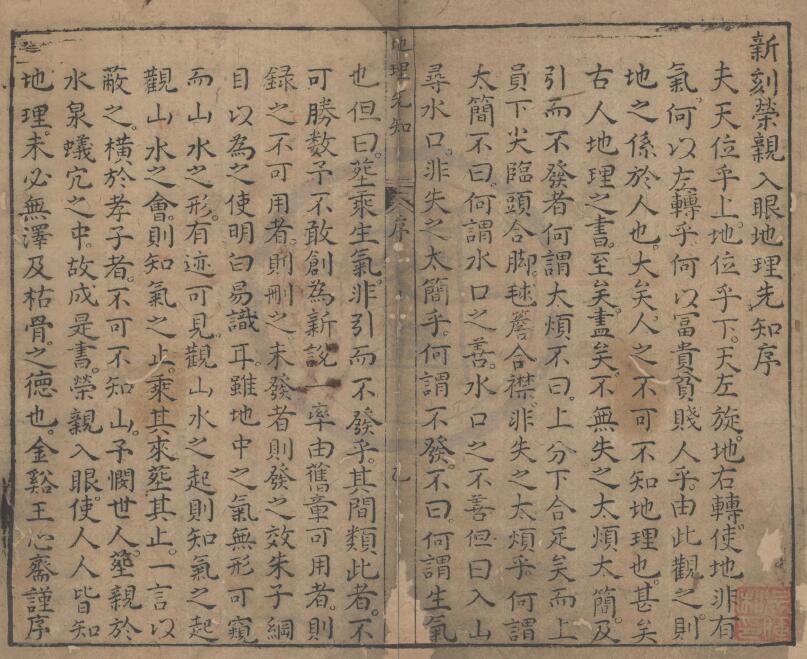 新刻榮親入眼地理先知序
夫天位乎上地位乎下天左旋地右轉使地非有
氣何以左轉乎何以冨貴貧賤人乎由此觀之則
地之係於人也大矣人之不可不知地理也甚矣
古人地理之書至矣盡矣不無失之太煩太簡及
引而不發者何謂太煩不曰上分下合足矣而上
員下尖臨頭合脚毬簷合襟非失之太煩乎何謂
太簡不曰何謂水口之善水口之不善但曰入山
尋水口非失之太簡乎何謂不發不曰何謂生氣
地理先知
序
也但曰塟乘生氣非引而不發乎其間類此者不
可勝數予不敢創為新說一率由舊章可用者則
録之不可用者則刪之未發者則發之效朱子綱
目以為之使明白易識耳雖地中之氣無形可窺
而山水之形有迹可見觀山水之起則知氣之起
觀山水之會則知氣之止乘其來塟其止一言以
蔽之橫於孝子者不可不知山予憫世人塟親於
水泉蟻穴之中故成是書榮親入眼使人人皆知
地理未必無澤及枯骨之德也金谿王心齋謹序